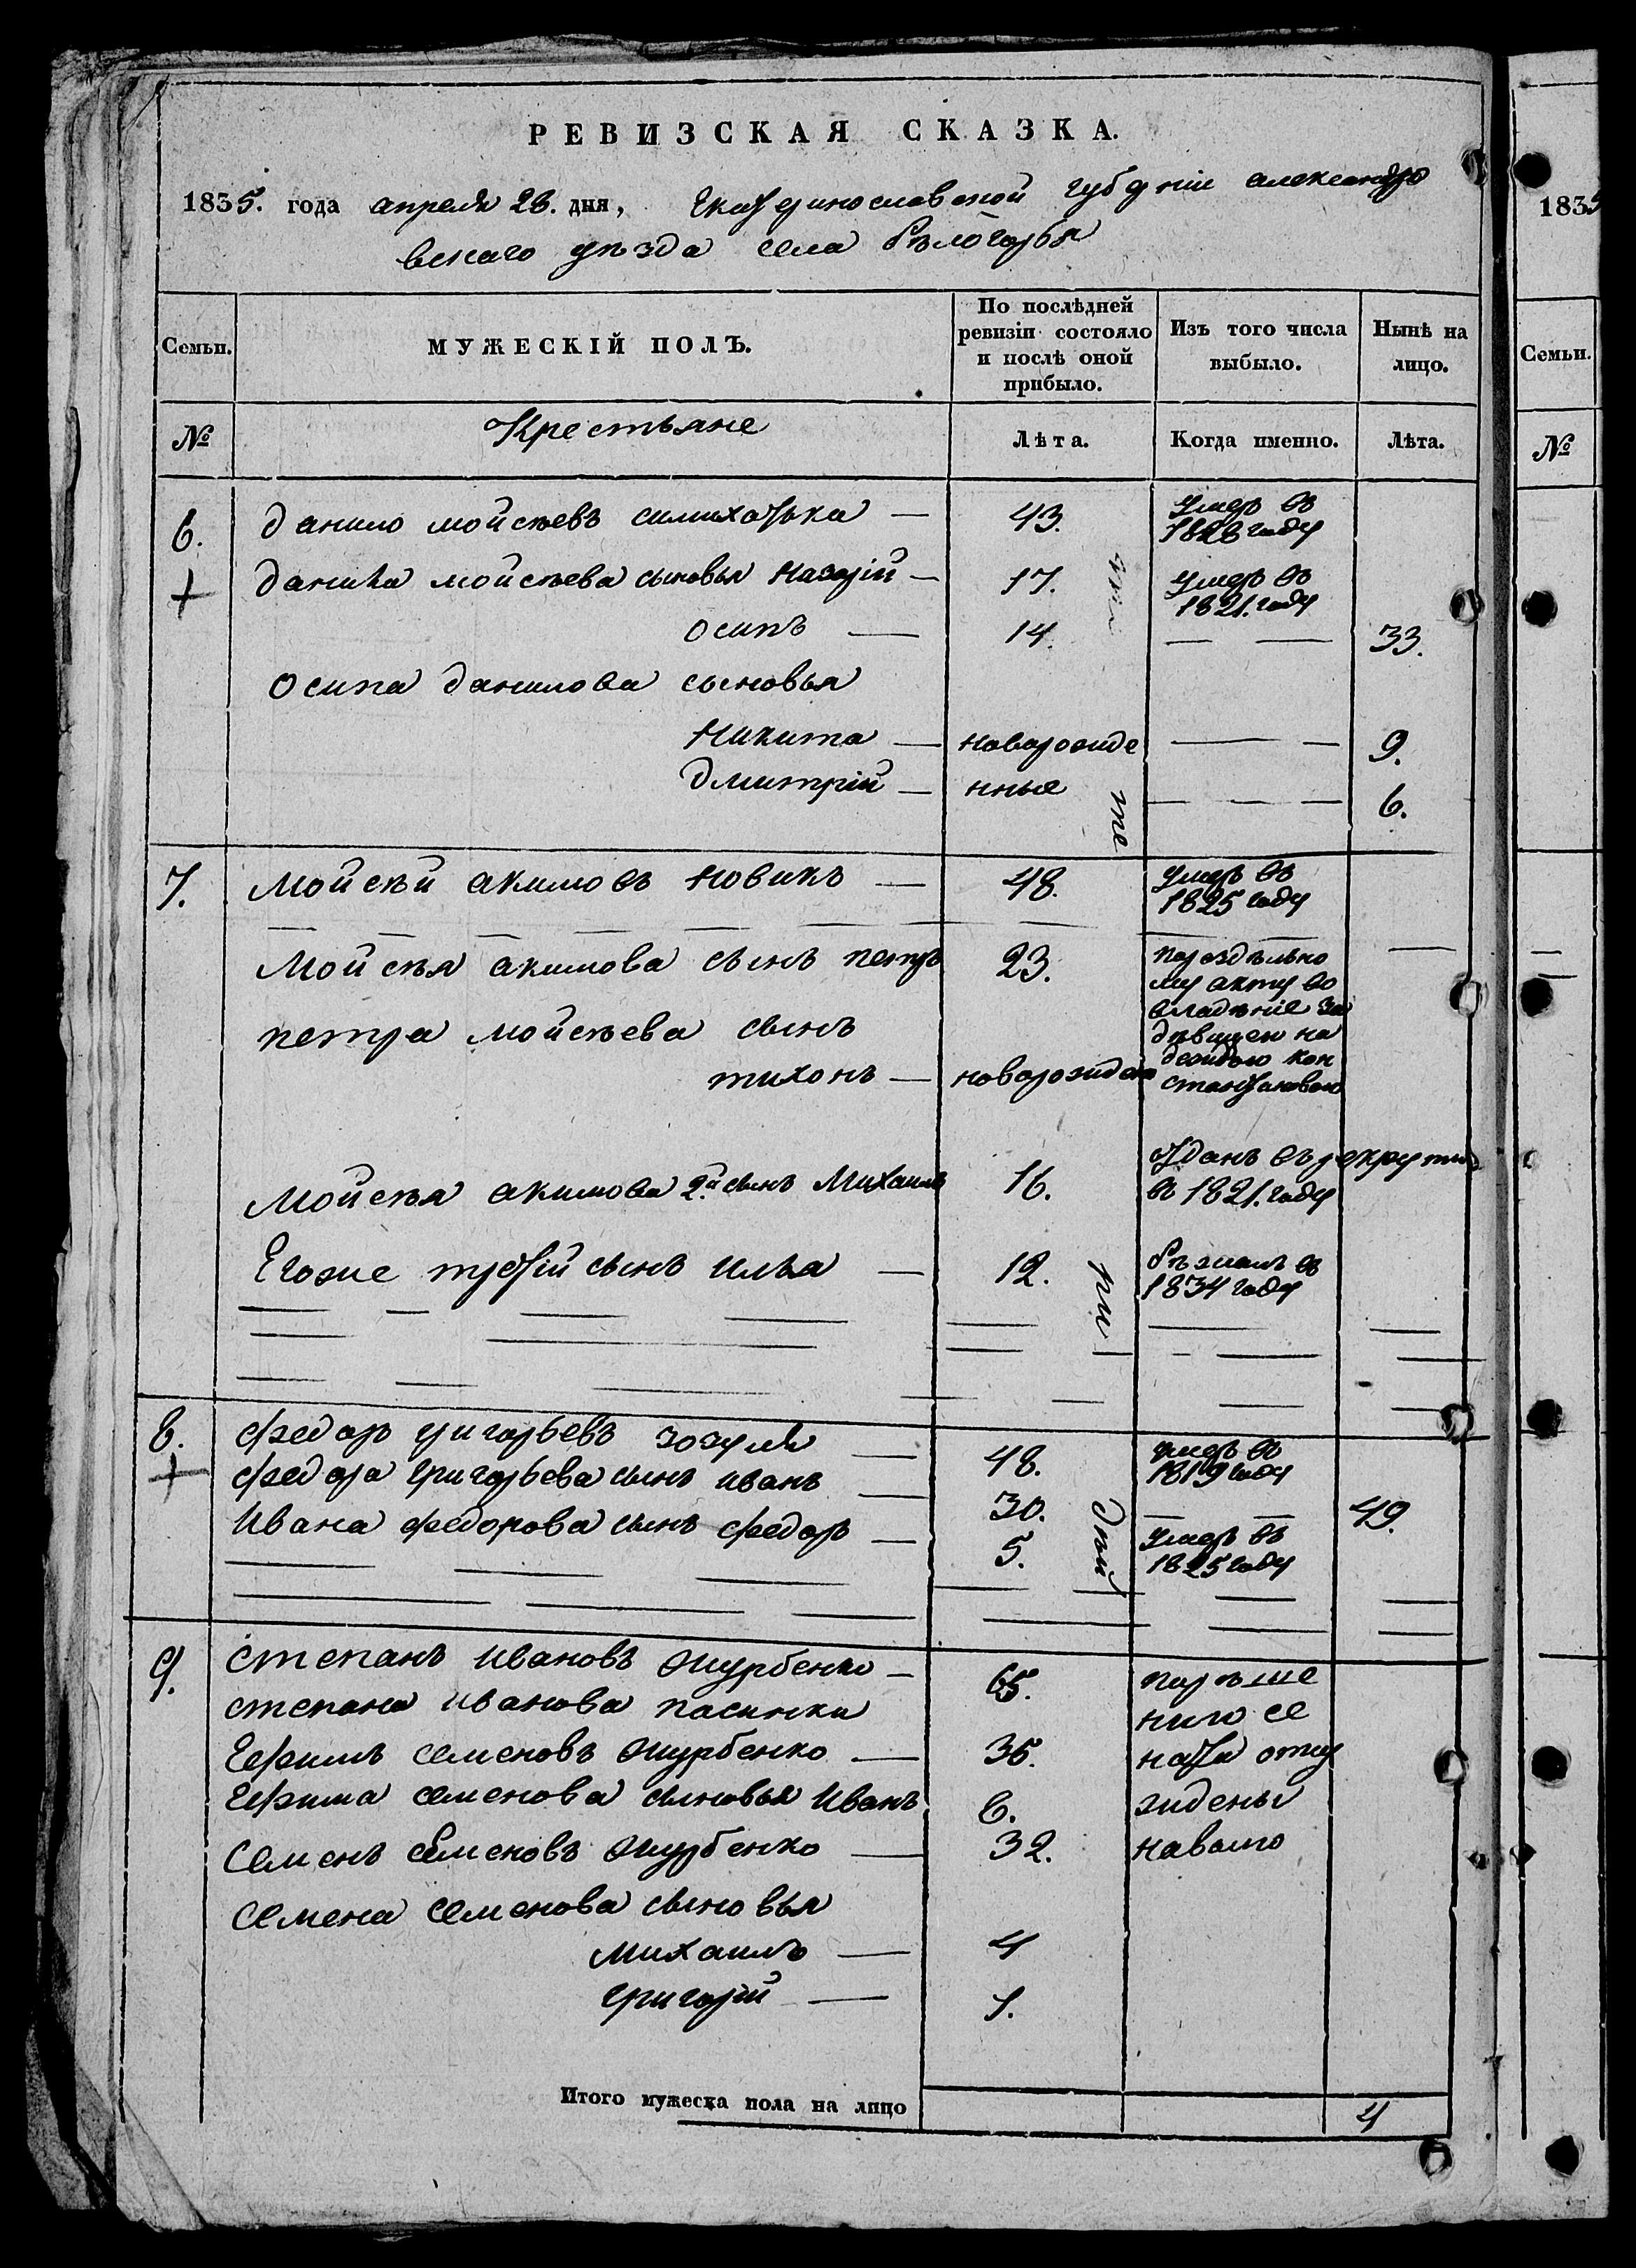 РЕВИЗСКАЯ СКАЗКА.
1835. года апреля 28. дня, Екатериносла­вской губерніи александро
вскаго уезда села белогорья
Семьи.
МУЖЕСКІЙ ПОЛЪ.
По послѣдней
ревизіи состояло
и послѣ оной
прибыло.
Изъ того числа
выбыло.
Нынѣ на
лицо.
№ Крестьяне Лѣта. Когда именно. Лѣта.
6. Данило мойсеевъ 43. умеръ въ
1828 году
Данила мойсеева сыновья Назарій 17. умеръ въ
1821. году
осипъ 14. 33.
осипа данилова сыновья
Никита новорожде 9.
Дмитрій нные 6.
7. Мойсей акимовъ новикъ 48. умеръ въ
1825 году
Мойсея акимова сынъ петръ 23. по раздельно
му акту во
владеніе за
девицею на
деждою кон
стантиновою
петра мойсеева сынъ
тихонъ новорожден
Мойсея акимова 2й сынъ Михаилъ 16. отданъ въ рекруты
въ 1821. году
Егоже третій сынъ илья 12. бежалъ въ
1834 году
8. федоръ григорьевъ зозуля 48. умеръ въ
1819 году
федора григорьева сынъ иванъ 30. 49.
Ивана федорова сынъ федоръ 5. умеръ въ
1825 году
9. степанъ ивановъ журбенко 65. по реше
степана иванова пасынки нию се
Ефимъ семеновъ журбенко 35. ната отсу
Ефима семенова сыновья Иванъ 6. ждены
Семенъ семеновъ журбенко 32. наволю
Семена семенова сыновья
михаилъ 4
григорій 1.
Итого мужеска пола на лицо 4
1835
Семьи.
№